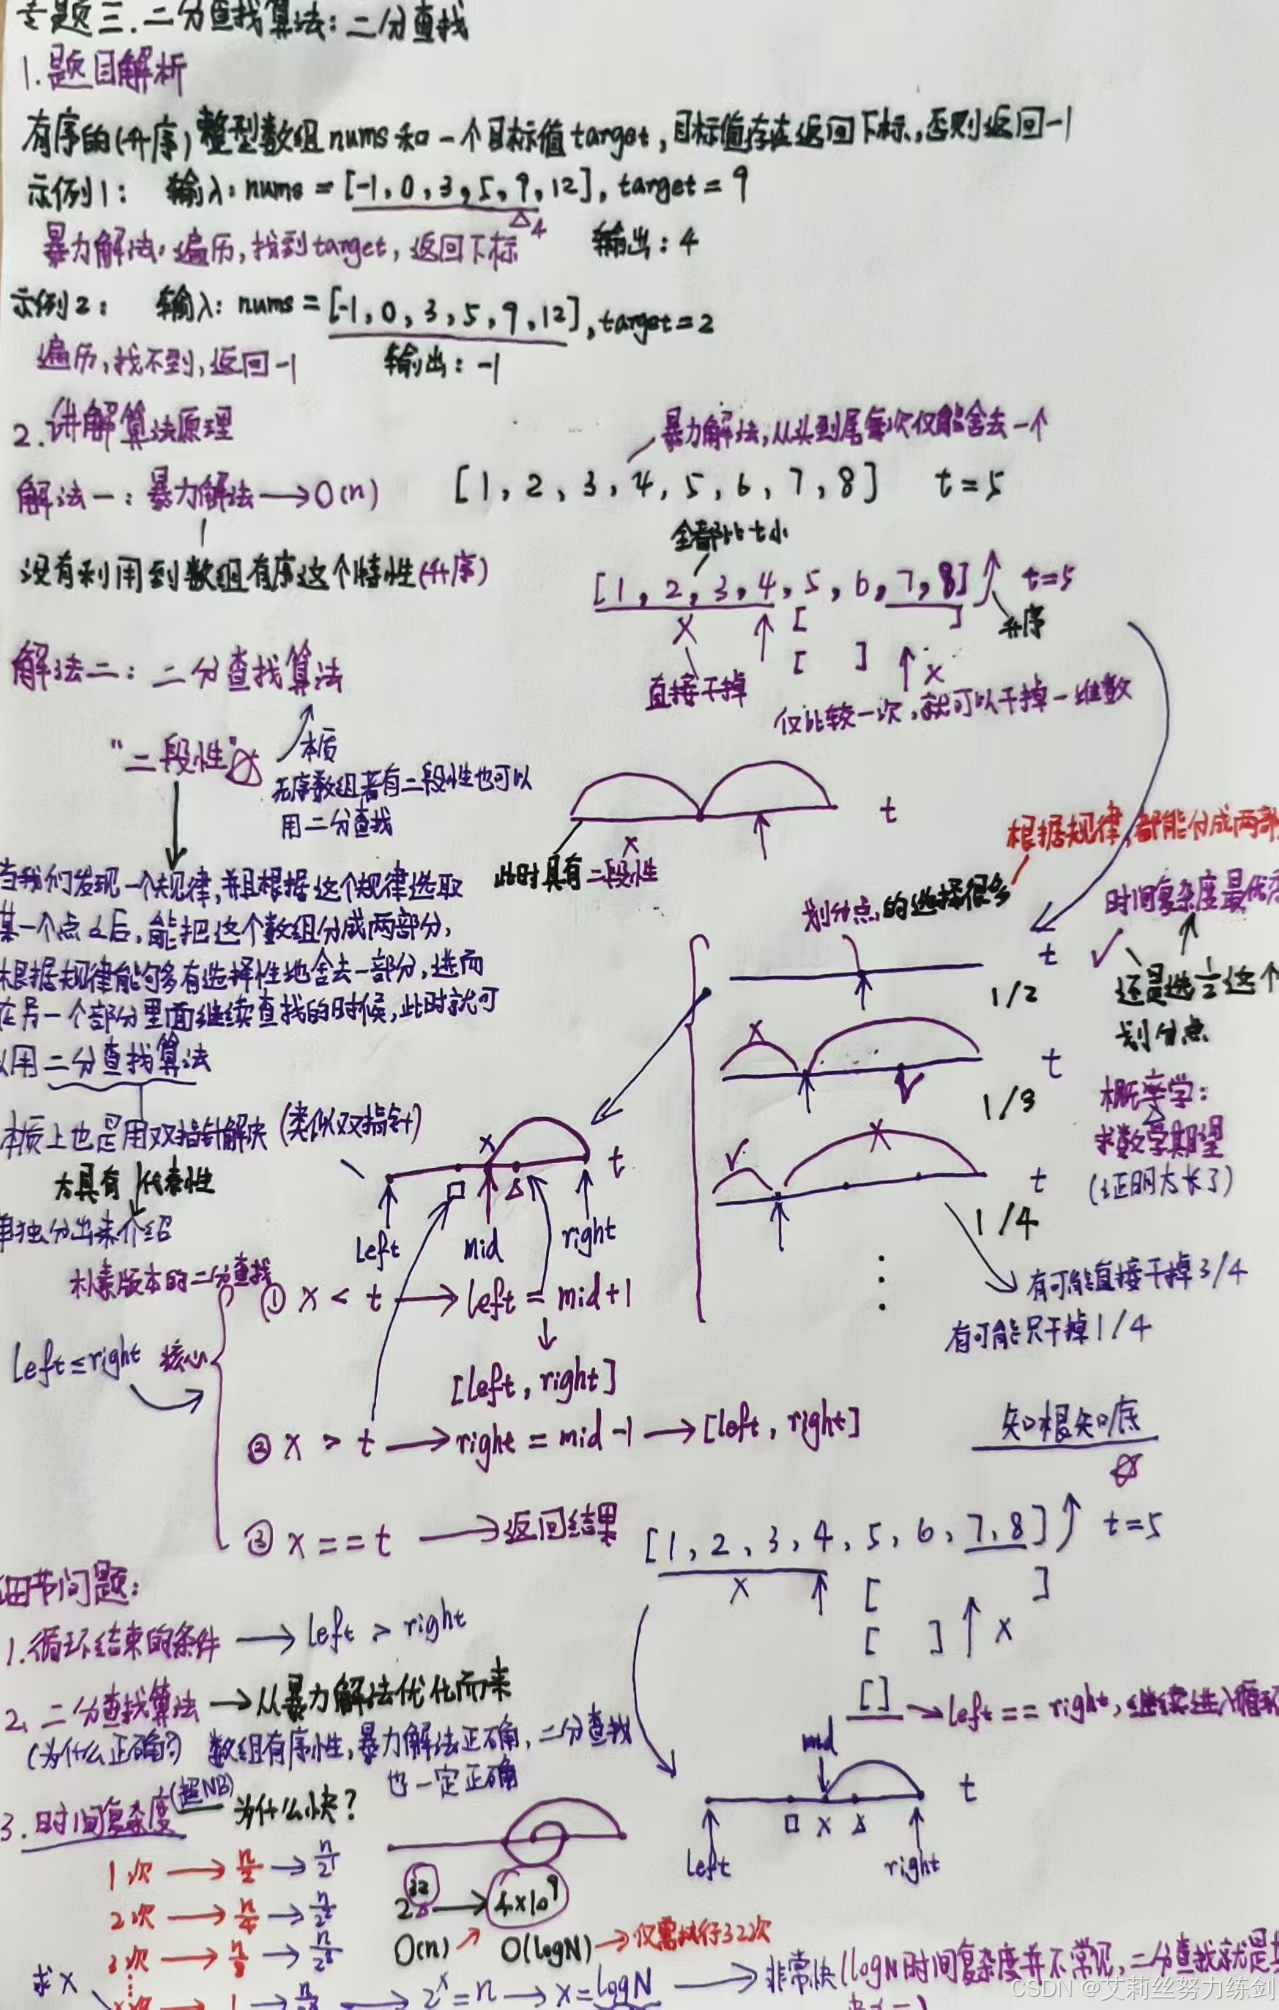 专题三.二分查找算法:二分查找
1.题目解析
有序的(升序)整型数组nums和一个目标值target,目标值存在返回下标,否则返回-1
示例1: 输入:nums=[-1,0,3,5,9,12],target=9
△4
暴力解法:遍历,找到target,返回下标 输出:4
示例2: 输入:nums=[-1,0,3,5,9,12],target=2
遍历,找不到,返回-1 输出:-1
2.讲解算法原理
暴力解法,从头到尾每次仅能舍去一个
解法一:暴力解法→O(n) [1,2,3,4,5,6,7,8] t=5
没有利用到数组有序这个特性(升序)
全部比t小
[1,2,3,4,5,6,7,8] t=5
x [ ] 升序
[ ] x
直接干掉
仅比较一次,就可以干掉一堆数
解法二:二分查找算法
"二段性" 本质
无序数组若有二段性也可以
用二分查找
t
x
此时具有二段性
当我们发现一个规律,并且根据这个规律选取
某一个点之后,能把这个数组分成两部分,
根据规律能够有选择性地舍去一部分,进而
在另一个部分里面继续查找的时候,此时就可
以用二分查找算法
根据规律,都能分成两部
划分点的选择很多
时间复杂度最优
t ✓
1/2
还是选1/2这个
划分点
x
t
✓
1/3
概率学:
求数学期望
(证明太长了)
✓ x
t
1/4
有可能直接干掉3/4
有可能只干掉1/4
本质上也是用双指针解决(类似双指针)
太具有代表性
单独分出来介绍
朴素版本的二分查找
x t
□ △
left mid right
left≤right 核心
① x < t → left = mid+1
[left, right]
② x > t → right = mid-1 → [left, right]
③ x == t → 返回结果
知根知底
[1,2,3,4,5,6,7,8] t=5
x [ ]
[ ] x
[ ] → left == right,继续进入循环
mid
t
□ x △
left right
细节问题:
1.循环结束的条件 → left > right
2.二分查找算法 → 从暴力解法优化而来
(为什么正确?) 数组有序性,暴力解法正确,二分查找
也一定正确
3.时间复杂度(超NB) 为什么快?
1次 → n/2 → n/2¹
2次 → n/4 → n/2²
3次 → n/8 → n/2³
2³² → 4×10⁹
O(n) O(logN) → 仅需执行32次
求x
x次 → 1 → 2ˣ=n → x=logN → 非常快(logN时间复杂度并不常见,二分查找就是其
CSDN @艾莉丝努力练剑